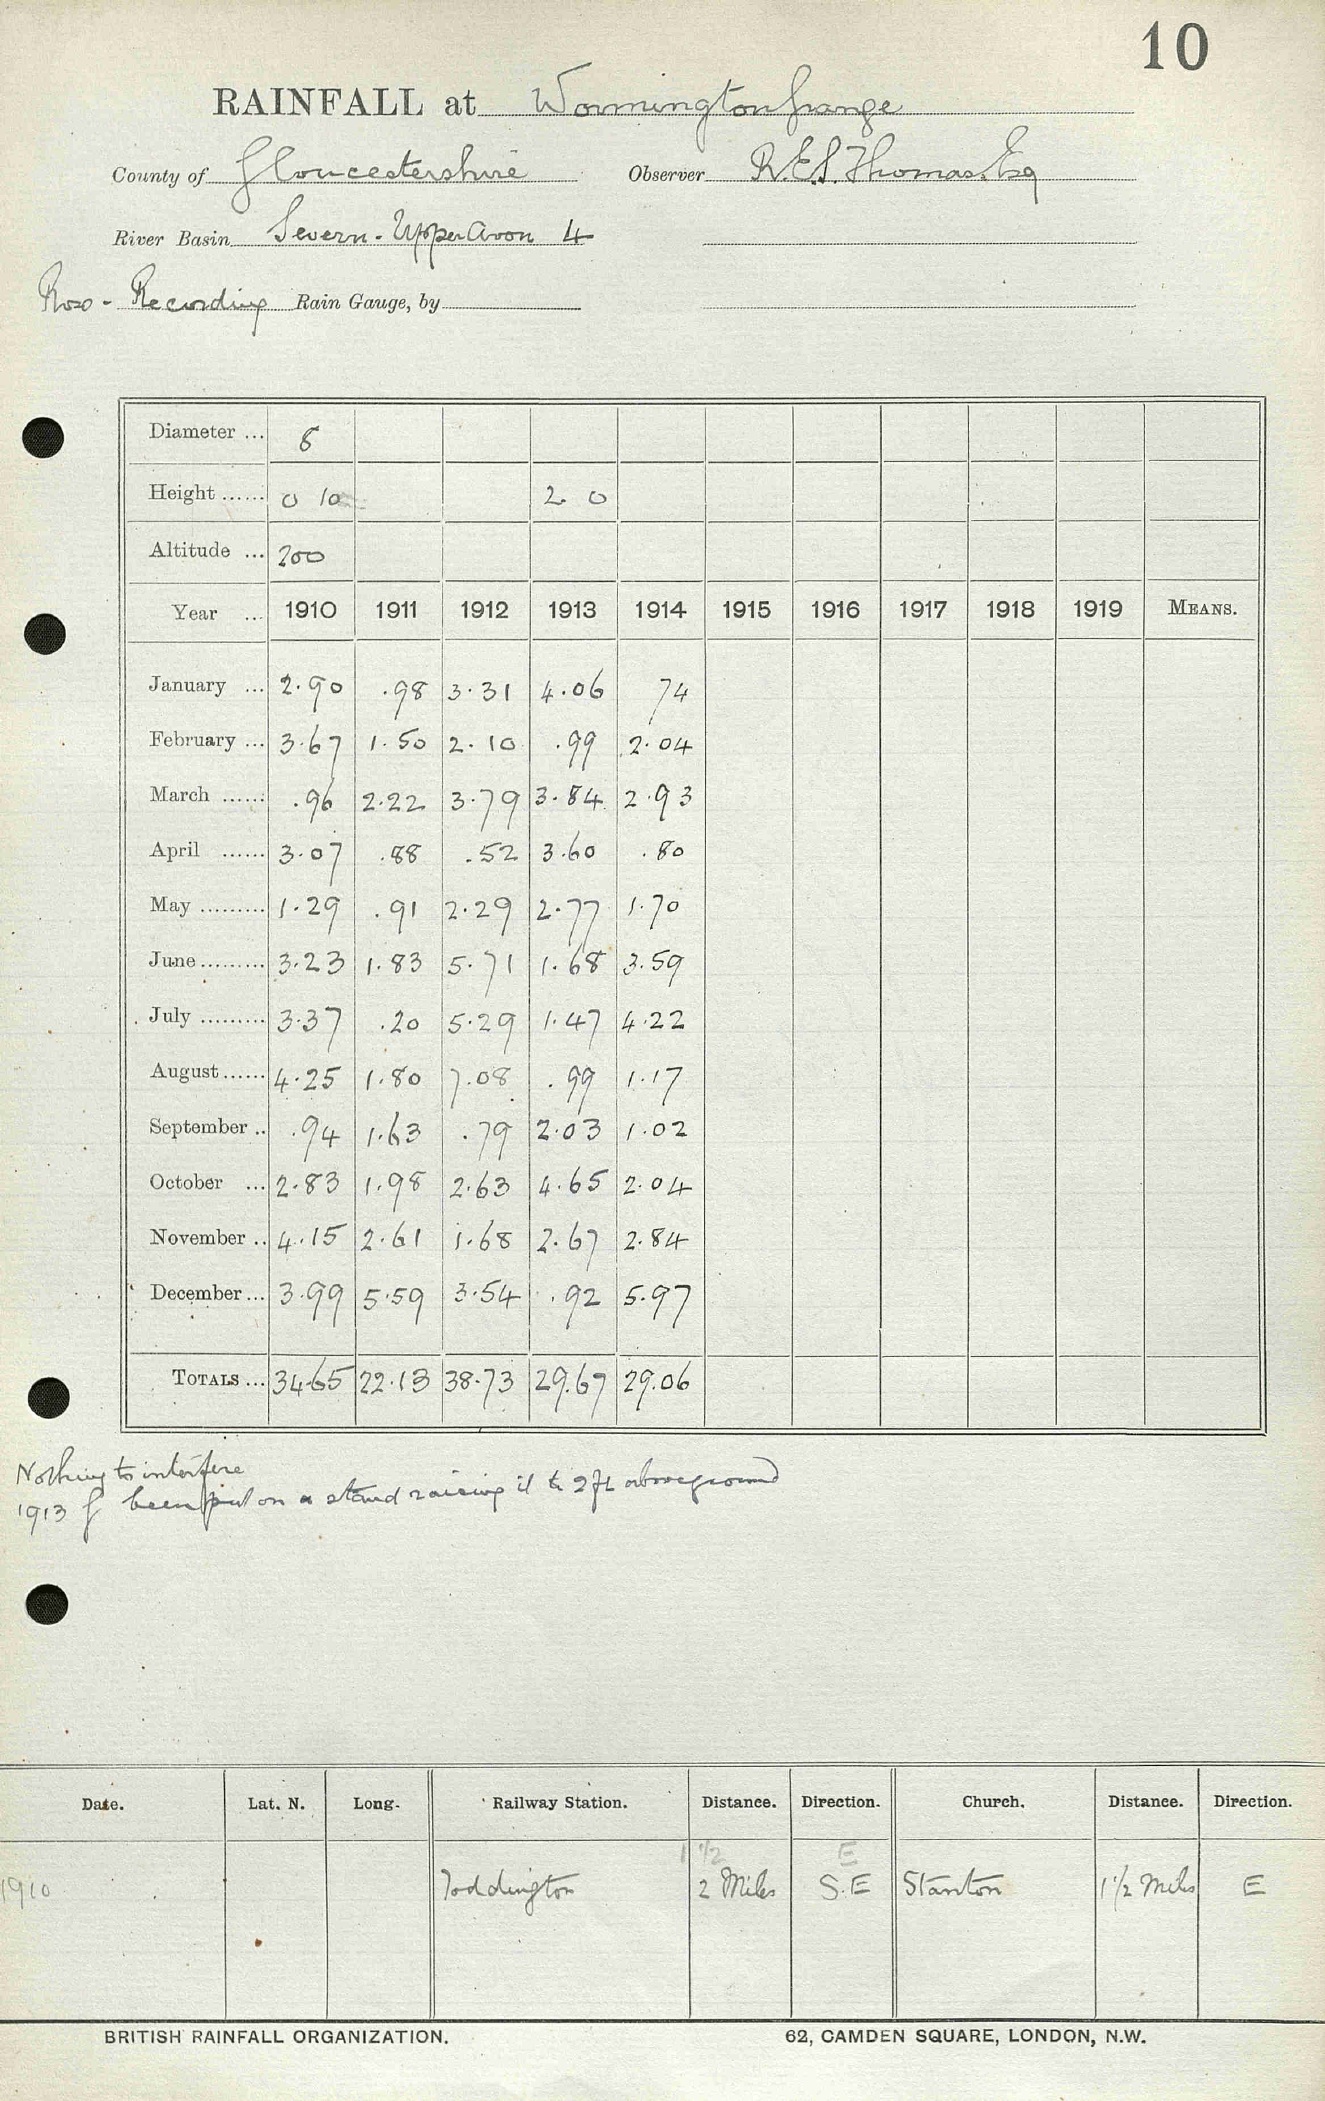 10
RAINFALL at Wormington Grange
County of Gloucestershire Observer R.E.S. Thomas. Esq
River Basin Severn - Upper Avon 4
Recording Rain Gauge, by
Diameter ... 8
Height ...... 0 10 2 0
Altitude ... 200
Year ... 1910 1911 1912 1913 1914 1915 1916 1917 1918 1919 MEANS.
January ... 2.90 .98 3.31 4.06 74
February ... 3.67 1.50 2.10 .99 2.04
March ...... .96 2.22 3.79 3.84 2.93
April ...... 3.07 .88 .52 3.60 .80
May ......... 1.29 .91 2.29 2.77 1.70
June ......... 3.23 1.83 5.71 1.68 3.59
July ......... 3.37 .20 5.29 1.47 4.22
August ...... 4.25 1.80 7.08 .99 1.17
September .. .94 1.63 .79 2.03 1.02
October ... 2.83 1.98 2.63 4.65 2.04
November .. 4.15 2.61 1.68 2.67 2.84
December ... 3.99 5.59 3.54 .92 5.97
TOTALS ... 34.65 22.13 38.73 29.67 29.06
Nothing to interfere
1913 been put on a stand raising it to 2 ft above ground
Date. Lat. N. Long. Railway Station. Distance. Direction. Church. Distance. Direction.
1 1/2 E
1910 Toddington 2 Miles S.E Stanton 1 1/2 Miles E
BRITISH RAINFALL ORGANIZATION. 62, CAMDEN SQUARE, LONDON, N.W.